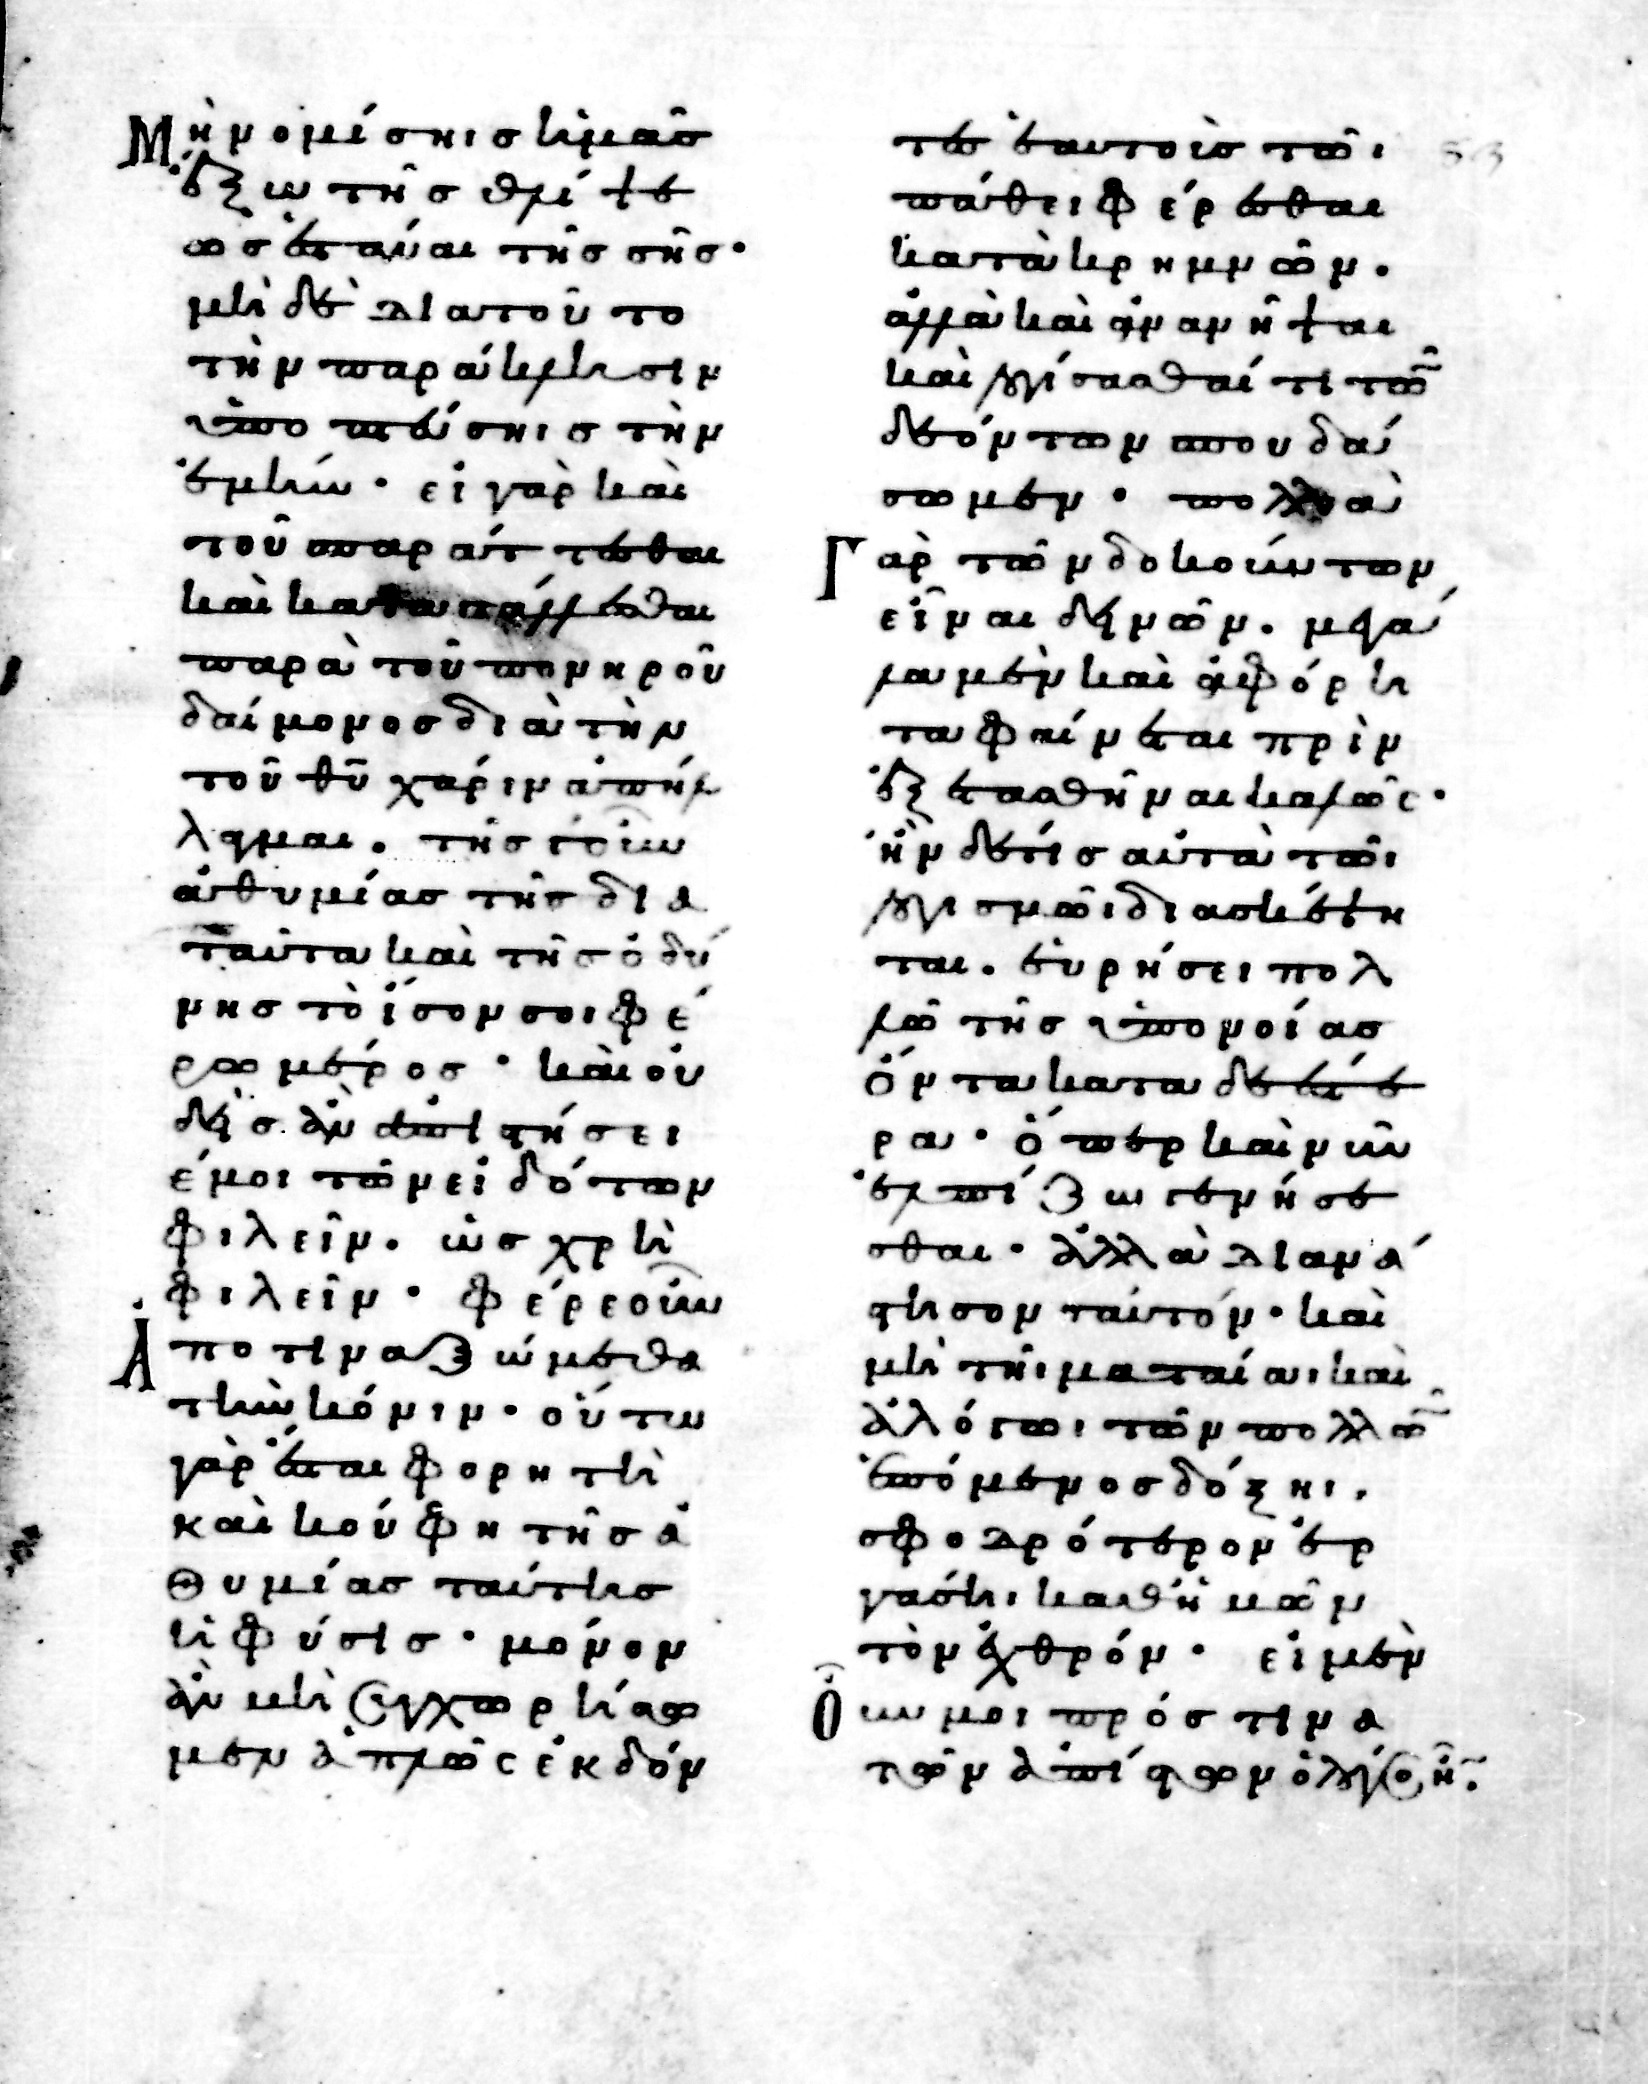 Μὴ νομίσηις ἡμᾶσ
ἔξω τῆσ θλίψε
ωσ ἑστάναι τῆσ σῆσ·
μὴ δὲ διατοῦ το
τὴν παράκλησιν
ὑποπτεύσηισ τὴν
ἐμήν· εἰ γὰρ καὶ
τοῦ σπαράττεσθαι
καὶ καταπάλλεσθαι
παρὰ τοῦ πονηροῦ
δαίμονοσ διὰ τὴν
τοῦ θῦ χάριν ἀπήλ
λαγμαι. τῆσ γοῦν
ἀθυμίασ τῆσ δια
ταῦτα καὶ τῆσ ὀδύ
νησ τὸ ἴσον σοι φέ
ρω μέροσ· καὶ οὐ
δεὶσ ἂν ἀπιστήσει
ἐμοι τῶν εἰδότων
φιλεῖν. ὡσ χρὴ
φιλεῖν· φέρε οὖν
Ἀποτιναξώμεθα
τὴν κόνιν· οὕτω
γὰρ ἔσται φορητὴ
καὶ κούφη τῆσ ἀ
θυμίασ ταύτησ
ἡ φύσισ· μόνον
ἂν μὴ συγχωρήσω
μεν ἁπλῶς ἐκδόν
τεσ ἑαυτοὺσ τῶι
πάθει φέρεσθαι
κατὰ κρημνῶν.
ἀλλὰ καὶ ἀνανῆψαι
καὶ λογίσασθαί τι τῶν
δεόντων σπουδά
σωμεν· πολλὰ
Γὰρ τῶν δοκούντων
εἶναι δεινῶν. μεγά
λα μὲν καὶ ἀφόρη
τα φαίνεται πρὶν
ἐξετασθῆναι καλῶς·
ἢν δέ τισ αὐτὰ τῶι
λογισμῶι διασκέψη
ται. εὑρήσει πολ
λῶ τῆσ ὑπονοίασ
ὄντα καταδεέσ
ρα· ὅπερ καὶ νῦν
ἐλπίζω γενήσε
σθαι· ἀλλὰ διανά
στησον σαυτόν· καὶ
μὴ τῆι ματαίαι καὶ
ἀλόγωι τῶν πολλῶν
ἑπόμενοσ δόξηι,
σφοδρότερον ἐρ
γάσηι καθ' ἡμῶν
τὸν ἐχθρόν· εἰ μὲν
Οὖν μοι πρόσ τινα
τῶν ἀπίστων ὁ λόγος ἦν.